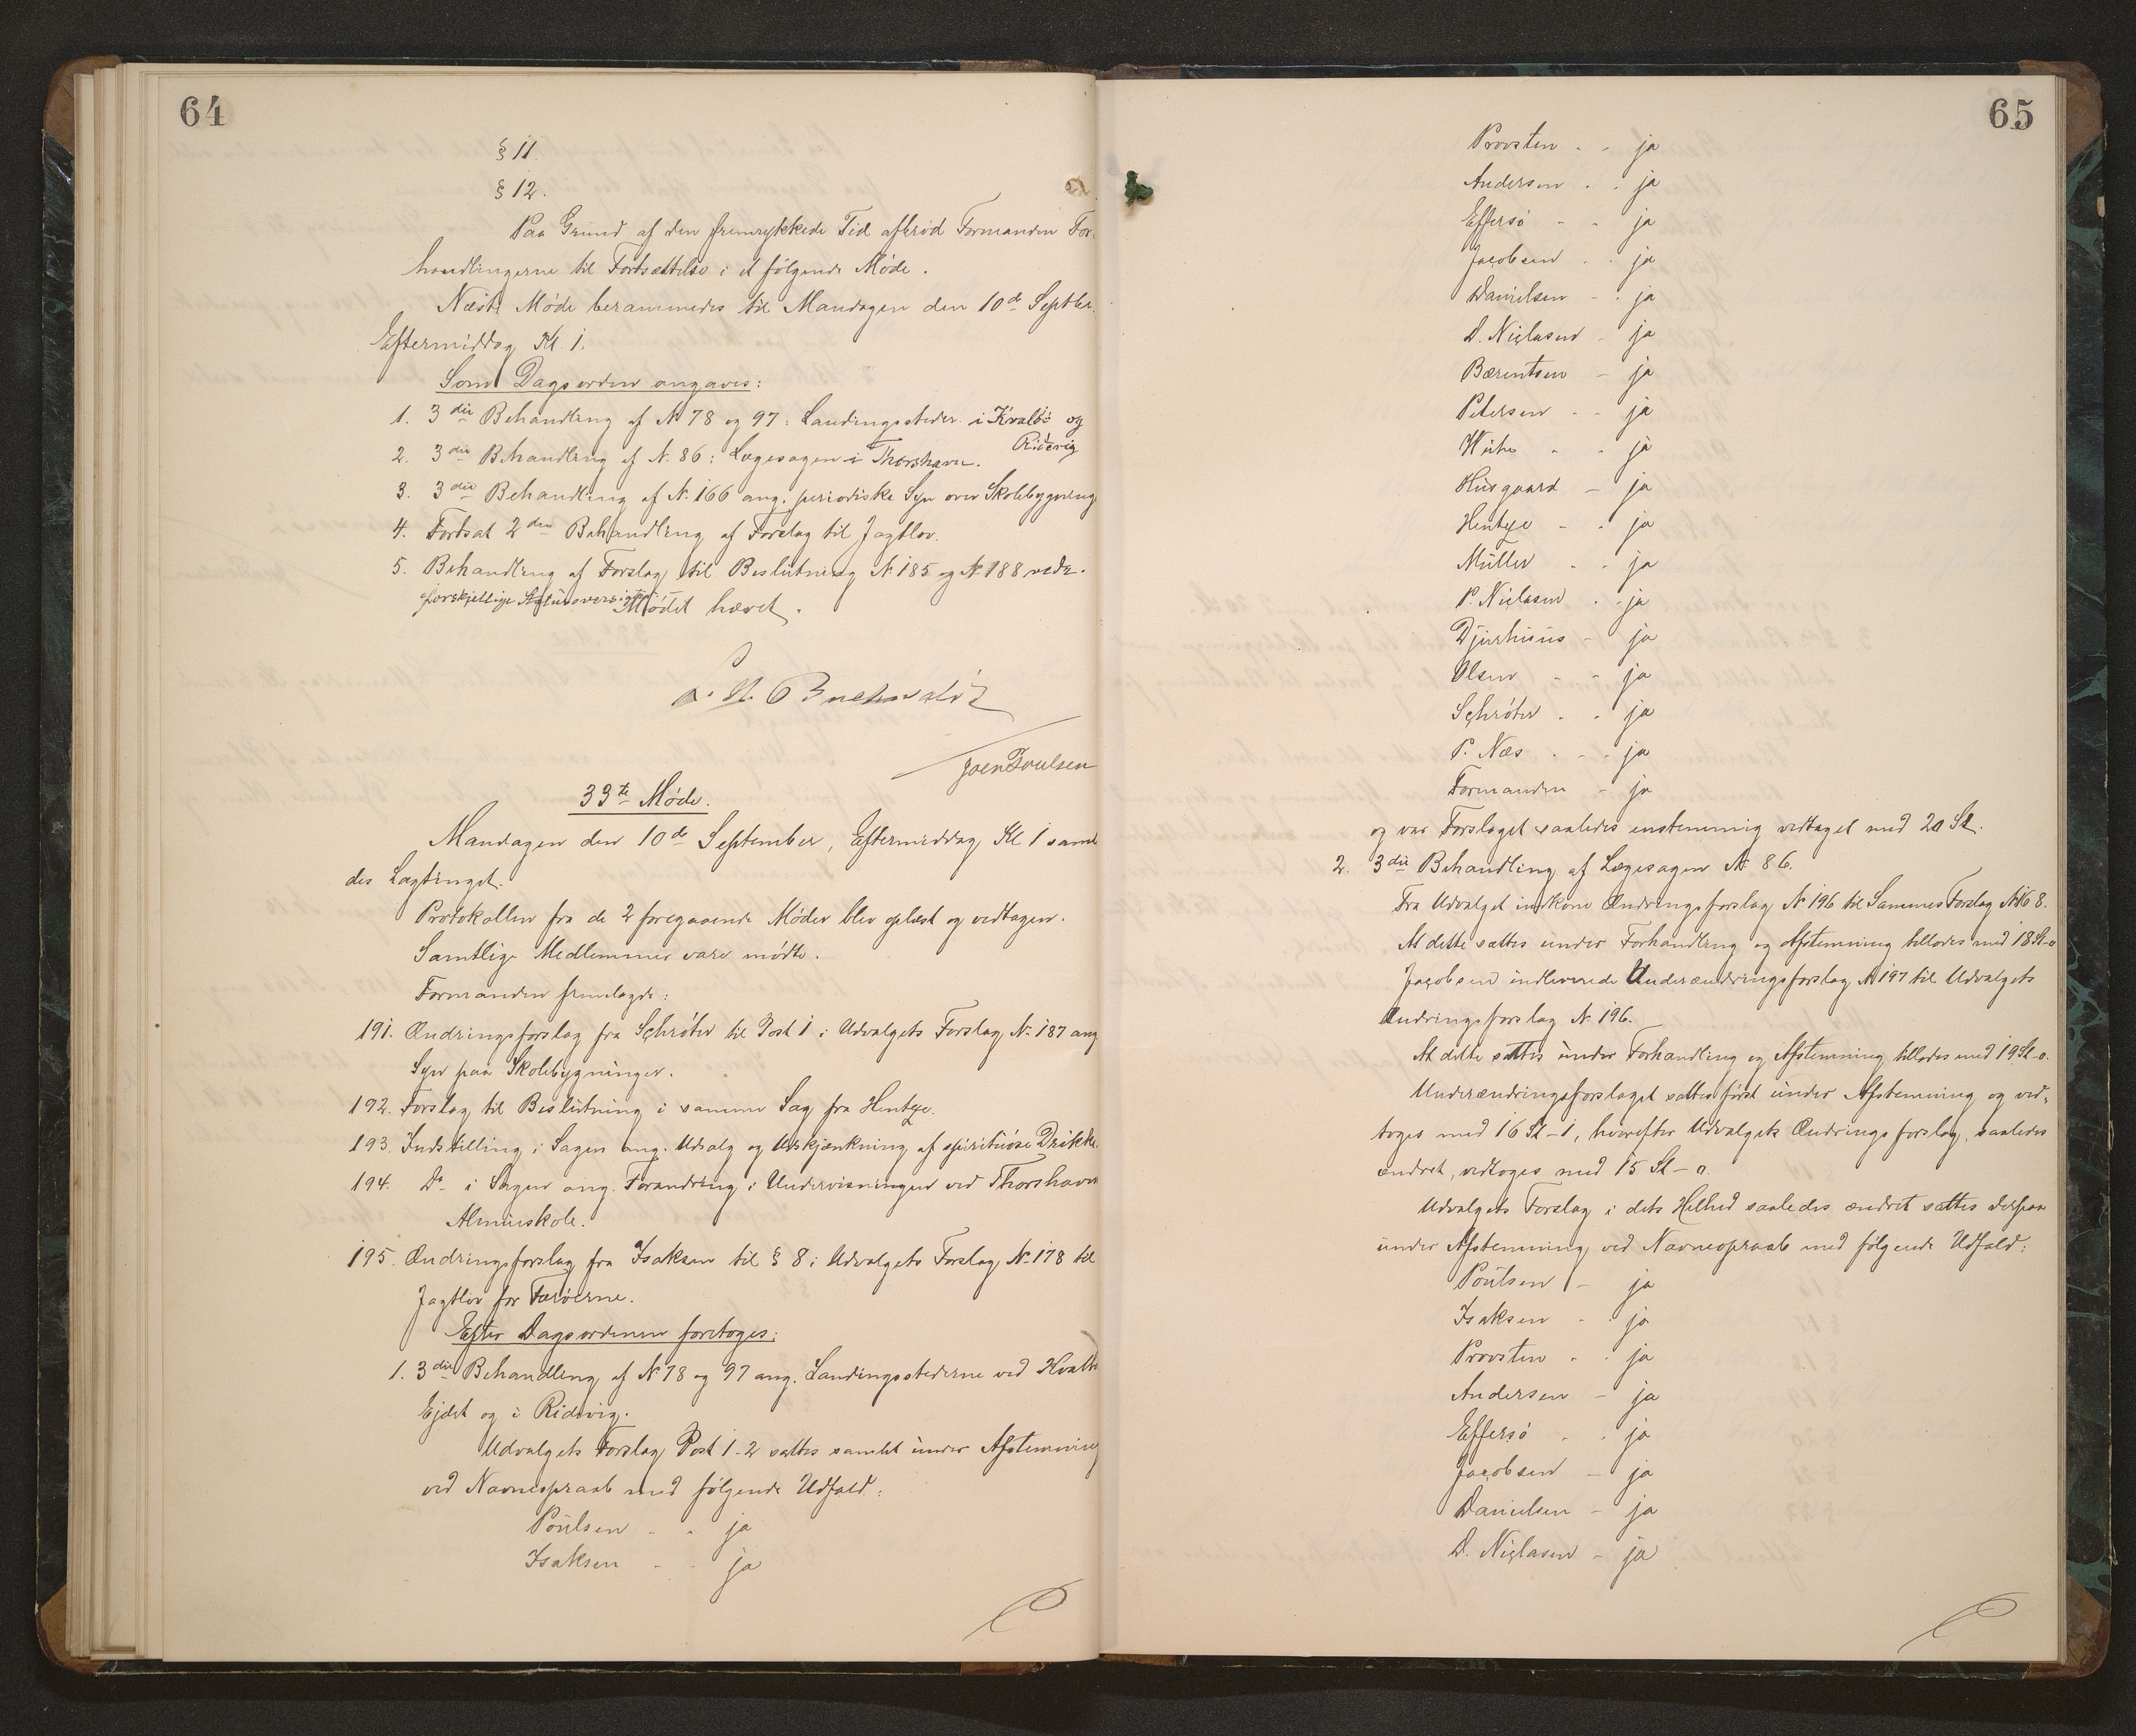 64
§ 11.
§ 12.
Paa Grund af den fremrykkede Tid afbrød Formanden For-
handlingerne til Fortsættelse i et følgende Møde.
Næste Møde berammedes til Mandagen den 10de Septber.
Eftermiddag Kl. 1.
Som Dagsorden angaves:
1. 3die Behandling af N. 78 og 97: Landingssteder i Kvalbø og
Ridevig
2. 3die Behandling af N. 86: Lægesagen i Thorshavn.
3. 3die Behandling af N. 166 ang. periodiske Syn over Skolebygning
4. Fortsat 2den Behandling af Forslag til Jagtlov.
5. Behandling af Forslag til Beslutning N. 185 og N. 188 vedr.
forskjellige
Mødet hævet.
C. A. Buchwaldt
Joen Poulsen
33te Møde.
Mandagen den 10de September, Eftermiddag Kl 1 saml
des Lagtinget.
Protokollen fra de 2 foregaaende Møder blev oplæst og vedtagen.
Samtlige Medlemmer vare mødte.
Formanden fremlagde:
191. Ændringsforslag fra Schrøter til Post 1 i Udvalgets Forslag N. 187 ang
Syn paa Skolebygninger.
192. Forslag til Beslutning i samme Sag fra Hentze.
193. Indstilling i Sagen ang. Udsalg og Udskjænkning af spirituøse Drikke.
194. Do i Sagen ang. Forandring i Undervisningen ved Thorshavn
Almueskole.
195. Ændringsforslag fra Isaksen til § 8 i Udvalgets Forslag N. 178 til
Jagtlov for Færøerne.
Efter Dagsordenen foretoges:
1. 3die Behandling af N. 78 og 97 ang. Landingsstederne ved Hvalb
Ejdet og i Ridevig.
Udvalgets Forslag Post 1-2 sattes samlet under Afstemning
ved Navneopraab med følgende Udfald:
Poulsen - - ja
Isaksen - - ja
65
Provsten - - ja
Andersen - - ja
Effersø - - ja
Jacobsen - - ja
Danielsen - - ja
D. Niclasen - ja
Bærentsen - ja
Petersen - - ja
Winther - - ja
Husgaard - ja
Hentze - - ja
Müller - - ja
P. Niclasen - - ja
Djurhuus - ja
Olsen - - ja
Schrøter - - ja
P. Næs - - - ja
Formanden - ja
og var Forslaget saaledes enstemmig vedtaget med 20 St.
2. 3die Behandling af Lægesagen N. 86.
Fra Udvalget indkom Ændringsforslag N. 196 til Sammes Forslag N. 168.
At dette sattes under Forhandling og Afstemning tillodes med 18 St-0
Jacobsen indleverede Underændringsforslag N. 197 til Udvalgets
Ændringsforslag N. 196.
At dette sattes under Forhandling og Afstemning tillodes med 19 St-0.
Underændringsforslaget sattes først under Afstemning og ved-
toges med 16 St-1, hvorefter Udvalgets Ændringsforslag, saaledes
ændret, vedtoges med 15 St-0.
Udvalgets Forslag i dets Helhed saaledes ændret sattes derpaa
under Afstemning ved Navneopraab med følgende Udfald:
Poulsen - ja
Isaksen - - ja
Provsten - - ja
Andersen - ja
Effersø - - ja
Jacobsen - ja
Danielsen - ja
D. Niclasen - ja